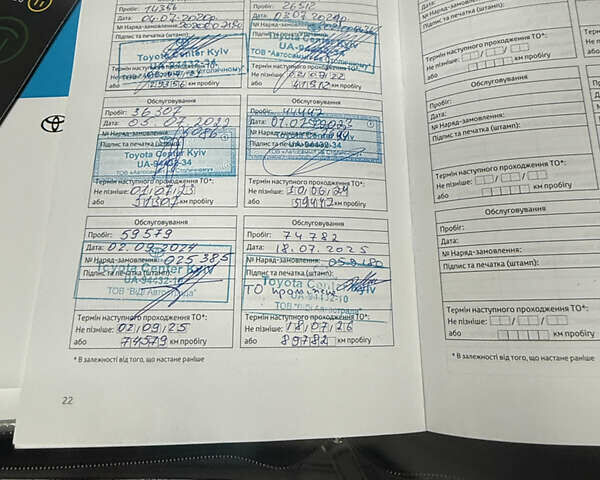 Пробіг: 10346
Дата: 04.07.2020р
№ Наряд-замовлення:
Підпис та печатка (штамп):
Toyota Center Kyiv
UA-94432-34
Термін наступного проходження ТО*:
або 29356 км пробігу
Пробіг: 26512
Дата: 03.07.2021р
№ Наряд-замовлення:
Підпис та печатка (штамп):
Toyota Center Kyiv
UA-94432-34
Термін наступного проходження ТО*:
Не пізніше: 02/09/22
або 41512 км пробігу
Обслуговування
Пробіг: 36307
Дата: 05.07.2022
№ Наряд-замовлення: 14086
Підпис та печатка (штамп):
Toyota Center Kyiv
UA-94432-34
Термін наступного проходження ТО*:
Не пізніше: 01/07/23
або 51307 км пробігу
Обслуговування
Пробіг: 44447
Дата:
№ Наряд-замовлення:
Підпис та печатка (штамп):
Toyota Center Kyiv
UA-94432-34
Термін наступного проходження ТО*:
Не пізніше: 10/06/24
або 59447 км пробігу
Обслуговування
Пробіг: 59579
Дата: 02.09.2024
№ Наряд-замовлення: 025385
Підпис та печатка (штамп):
Toyota Center Kyiv
UA-94432-10
ТОВ "ВіДі Автострада"
Термін наступного проходження ТО*:
Не пізніше: 02/09/25
або 74579 км пробігу
Обслуговування
Пробіг: 74782
Дата: 18.07.2025
№ Наряд-замовлення:
Підпис та печатка (штамп):
Toyota Center Kyiv
UA-94432-10
ТО
ТОВ "ВіДі Автострада"
Термін наступного проходження ТО*:
Не пізніше: 18/07/26
або 89782 км пробігу
* В залежності від того, що настане раніше
22
Термін наступного проходження ТО*:
Не пізніше:
або км пробігу
Обслуговування
Пробіг:
Дата:
№ Наряд-замовлення:
Підпис та печатка (штамп):
Термін наступного проходження ТО*:
Не пізніше:
або км пробігу
Обслуговування
Пробіг:
Дата:
№ Наряд-замовлення:
Підпис та печатка (штамп):
Термін наступного проходження ТО*:
Не пізніше:
або км пробігу
* В залежності від того, що настане раніше